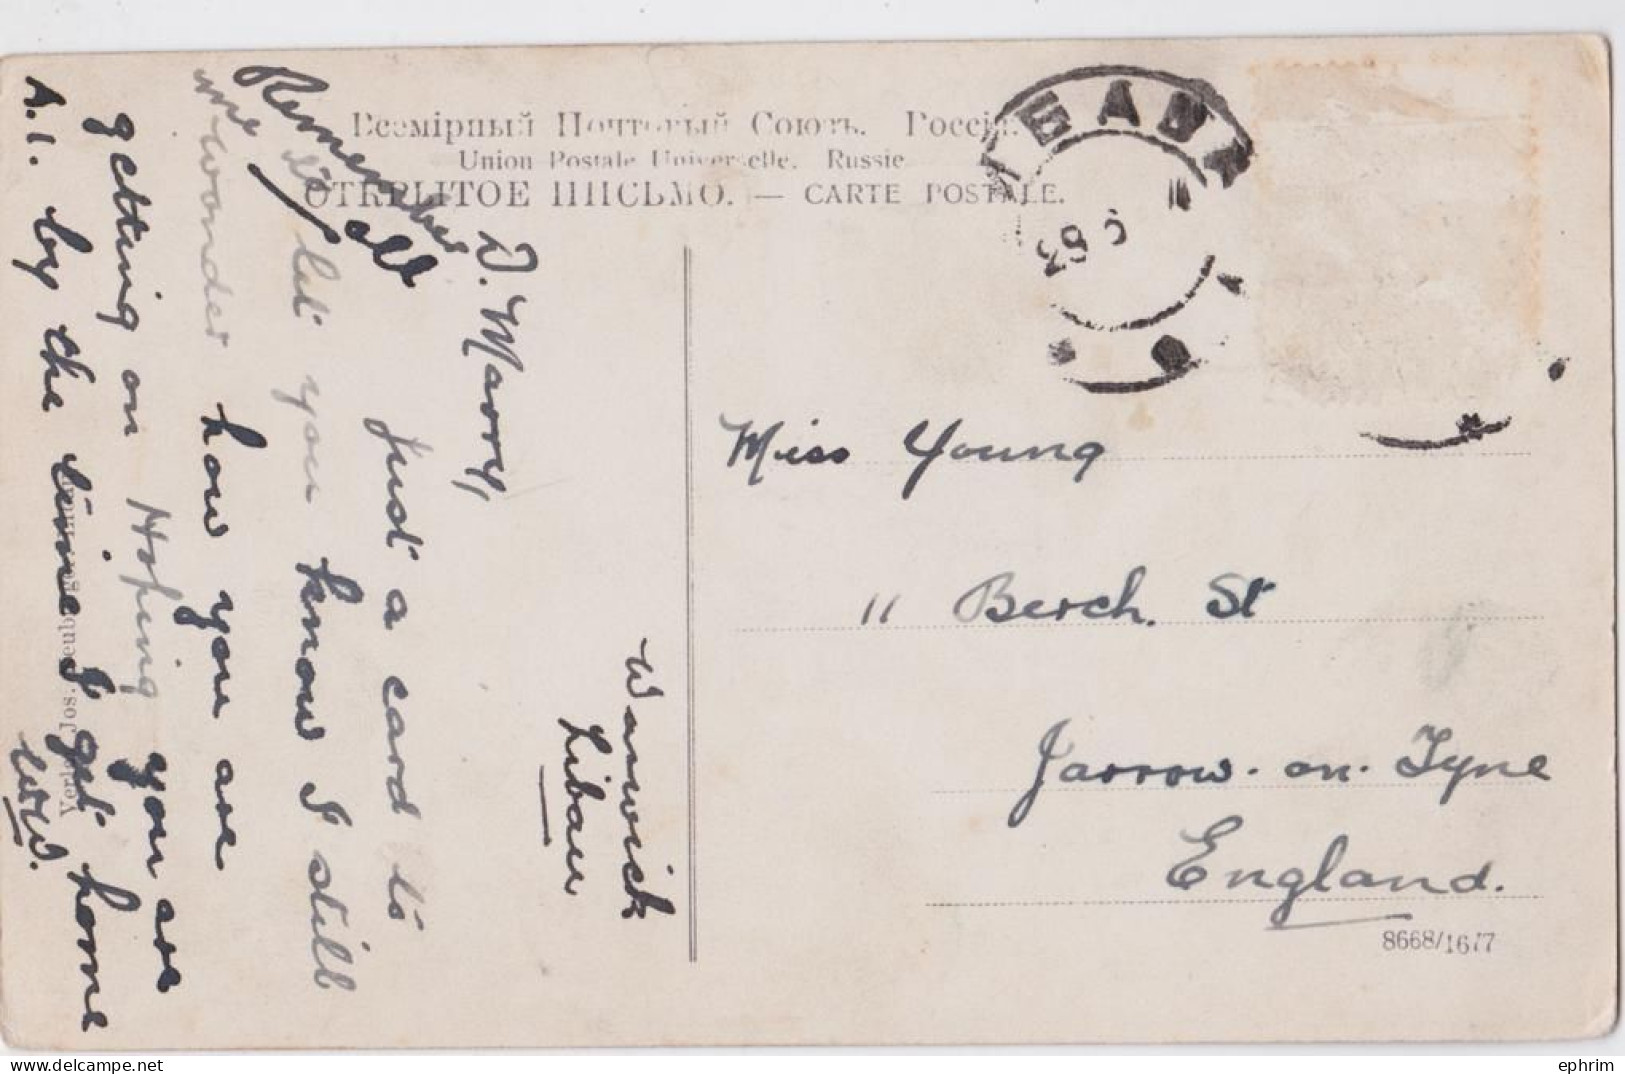 Всемірный Почтовый Союзъ. Россія.
Union Postale Universelle. Russie
ОТКРЫТОЕ ПИСЬМО. — CARTE POSTALE.
Warwick
Libau
D. Marry,
Just a card to
let you know I still
wonder how you are
getting on Hoping you are
A.1. by the time I get home
W.W.
Remember
me
all
Miss Young
11 Berch. St
Jarrow-on-Tyne
England.
8668/1677
Verlag Jos.
ЛИБАВА
28 5
ephrim